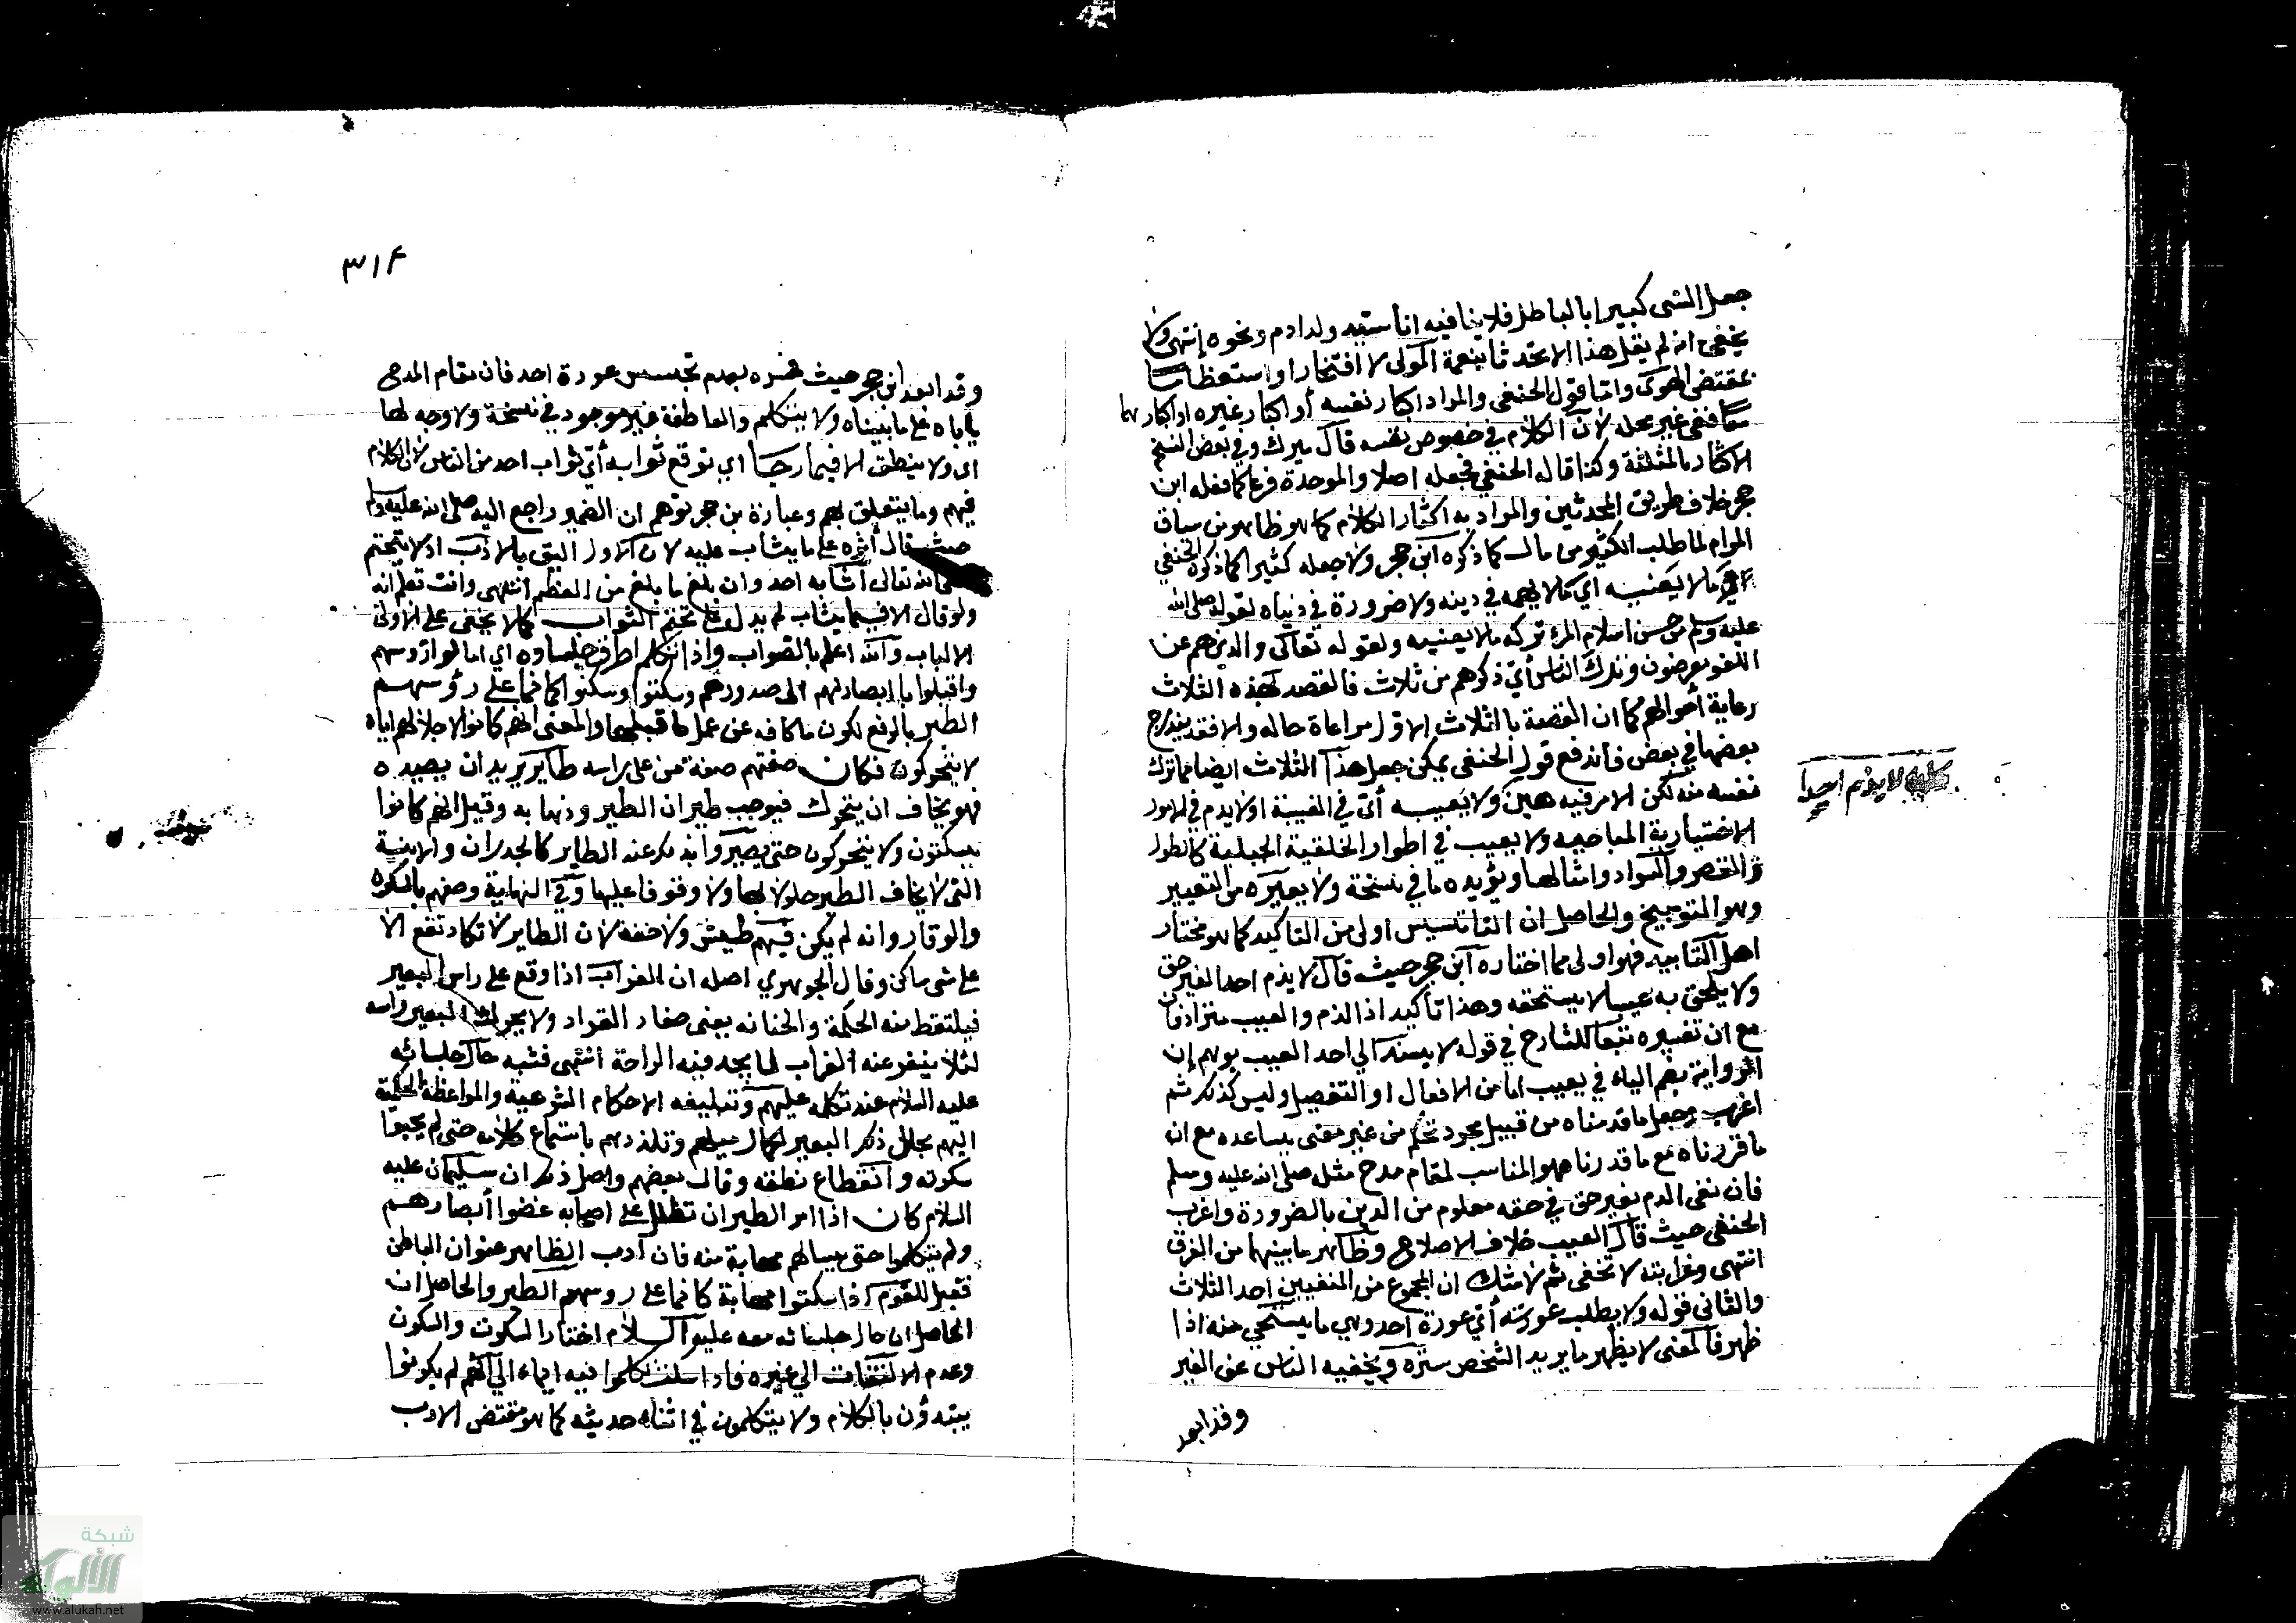 جعل الشي كبيرا بالباطل فلا ينافيه انا سيد ولد ادم ونحوه انتهى ولا
يخفى انه لم يقل هذا الا تحدثا بنعمة المولى لا افتخارا واستعظاما
بمقتضى الهوى واما قول الحنفي والمراد اكبار نفسه أو اكبار غيره او اكبارهما
معا ففي غير محله لان الكلام في خصوص نفسه قال ميرك وفي بعض النسخ
الاكثار بالمثلثة وكذا قاله الحنفي فجعله اصلا والموحدة فرعا كما فعله ابن
حجر خلاف طريق المحدثين والمراد به اكثار الكلام كما هو ظاهر من سياق
المرام لما طلب الكثير من مال كما ذكره ابن حجر ولا جعله كثيرا كما ذكره الحنفي
ما لا يعنيه اي مما لا يهمه في دينه ولا ضرورة في دنياه لقوله صلى الله
عليه وسلم من حسن اسلام المرء تركه ما لا يعنيه ولقوله تعالى والذين هم عن
اللغو معرضون وترك الناس أي ذكرهم من ثلاث فالقصد بهذه الثلاث
رعاية أحوالهم كما ان القصد بالثلاث الاول مراعاة حاله والا فقد يندرج
بعضها في بعض فاندفع قول الحنفي يمكن جعل هذا الثلاث ايضا مما ترك
نفسه منه لكن الامر فيه هين ولا يعيبه أي في الغيبة او لا يذم في الامور
الاختيارية المباحيه ولا يعيب في اطوار الخلقية الجبلية كالطول
والقصر والسواد وامثالها ويؤيده ما في نسخة ولا يعيره من التعيير
وهو التوبيخ والحاصل ان التاسيس اولى من التاكيد كما هو مختار
اهل التا بيد فهو اولى مما اختاره ابن حجر حيث قال لا يذم احدا لغير حق
ولا يلحق به عيبا لا يستحقه وهذا تأكيد اذ الذم والعيب مترادفان
مع ان تفسيره تبعا للشارح في قوله لا يسند الي احد العيب يوهم ان
الرواية بضم الياء في يعيب اما من الافعال او التفعيل وليس كذلك ثم
اغرب وجعل ما قدمناه من قبيل مجرد تحكم من غير معنى يساعده مع ان
ما قررناه مع ما قدرنا هو المناسب لمقام مدح مثله صلى الله عليه وسلم
فان نفي الذم بغير حق في حقه معلوم من الدين بالضرورة واغرب
الحنفي حيث قال العيب خلاف الاصلاح وظاهر ما بينهما من الفرق
انتهى وغرابته لا تخفى ثم لا شك ان المجموع من المنفيين احد الثلاث
والثاني قوله ولا يطلب عورته أي عورة احد وهي ما يستحي منه اذا
ظهر فالمعنى لا يظهر ما يريد الشخص ستره ويخفيه الناس عن الغير
وقد ابعد
ولا يذم احدا
٣١٤
وقد ابعد ابن حجر حيث فسره بعدم تجسس عورة احد فان مقام المدح
ياباه على ما بيناه ولا يتكلم والعاطفة غير موجود في نسخة ولا وجه لها
اي ولا ينطق الا فيما رجا اي توقع ثوابه أي ثواب احد من الناس لان الكلام
فيهم وما يتعلق بهم وعبارة بن حجر توهم ان الضمير راجع اليه صلى الله عليه وسلم
حيث قال أثره على ما يثاب عليه لان الاول اليق بالادب اذ لا يتحتم
على الله تعالى اثابه احد وان بلغ ما بلغ من العظم انتهى وانت تعلم انه
ولو قال الا فيما يثاب لم يدل على تحتم الثواب كما لا يخفى على الاولى
الالباب والله اعلم بالصواب واذا تكلم اطرق جلساوه اي امالوا رؤسهم
واقبلوا بابصارهم الى صدورهم وسكتوا وسكنوا كانما على رؤسهم
الطير بالرفع لكون ما كافه عن عمل ما قبلها والمعنى انهم كانوا لاجلالهم اياه
لا يتحركون فكان صفتهم صفة من على راسه طاير يريد ان يصيده
فهو يخاف ان يتحرك فيوجب طيران الطير وذهابه وقيل انهم كانوا
يسكنون ولا يتحركون حتى يصيروا بذلك عند الطاير كالجدران والابنية
التي لا يخاف الطير حلولا بها ولا وقوفا عليها وفي النهاية وصفهم بالسكون
والوقار وانه لم يكن فيهم طيش ولا خفة لان الطاير لا تكاد تقع الا
على شي ساكن وقال الجوهري اصله ان الغراب اذا وقع على راس البعير
فيلتقط منه الحلمة والحنانه يعني صغار القراد ولا يحرك البعير راسه
لئلا ينفر عنه الغراب لما يجد فيه الراحة انتهى فشبه حال جلسائه
عليه السلام عند تكلمه عليهم وتبليغه الاحكام الشرعية والمواعظ الحكمية
اليهم بحال ذلك البعير لكمال ميلهم وتلذذهم باستماع كلامه حتى لم يحبوا
سكوته وانقطاع نطقه وقال بعضهم واصل ذلك ان سليمان عليه
السلام كان اذا امر الطير ان تظلل على اصحابه غضوا أبصارهم
ولم يتكلموا حتى يسالهم مهابة منه فان أدب الظاهر عنوان الباطن
فقيل للقوم اذا سكتوا مهابة كانما على روسهم الطير والحاصل ان
الحاصل ان حال جلسائه معه عليه السلام اختار السكوت والسكون
وعدم الالتفات الي غيره فاذا سكت تكلموا فيه ايماء الي انهم لم يكونوا
يبتدؤن بالكلام ولا يتكلمون في اثناء حديثه كما هو مقتضى الادب
شبكة
الألوكة
www.alukah.net